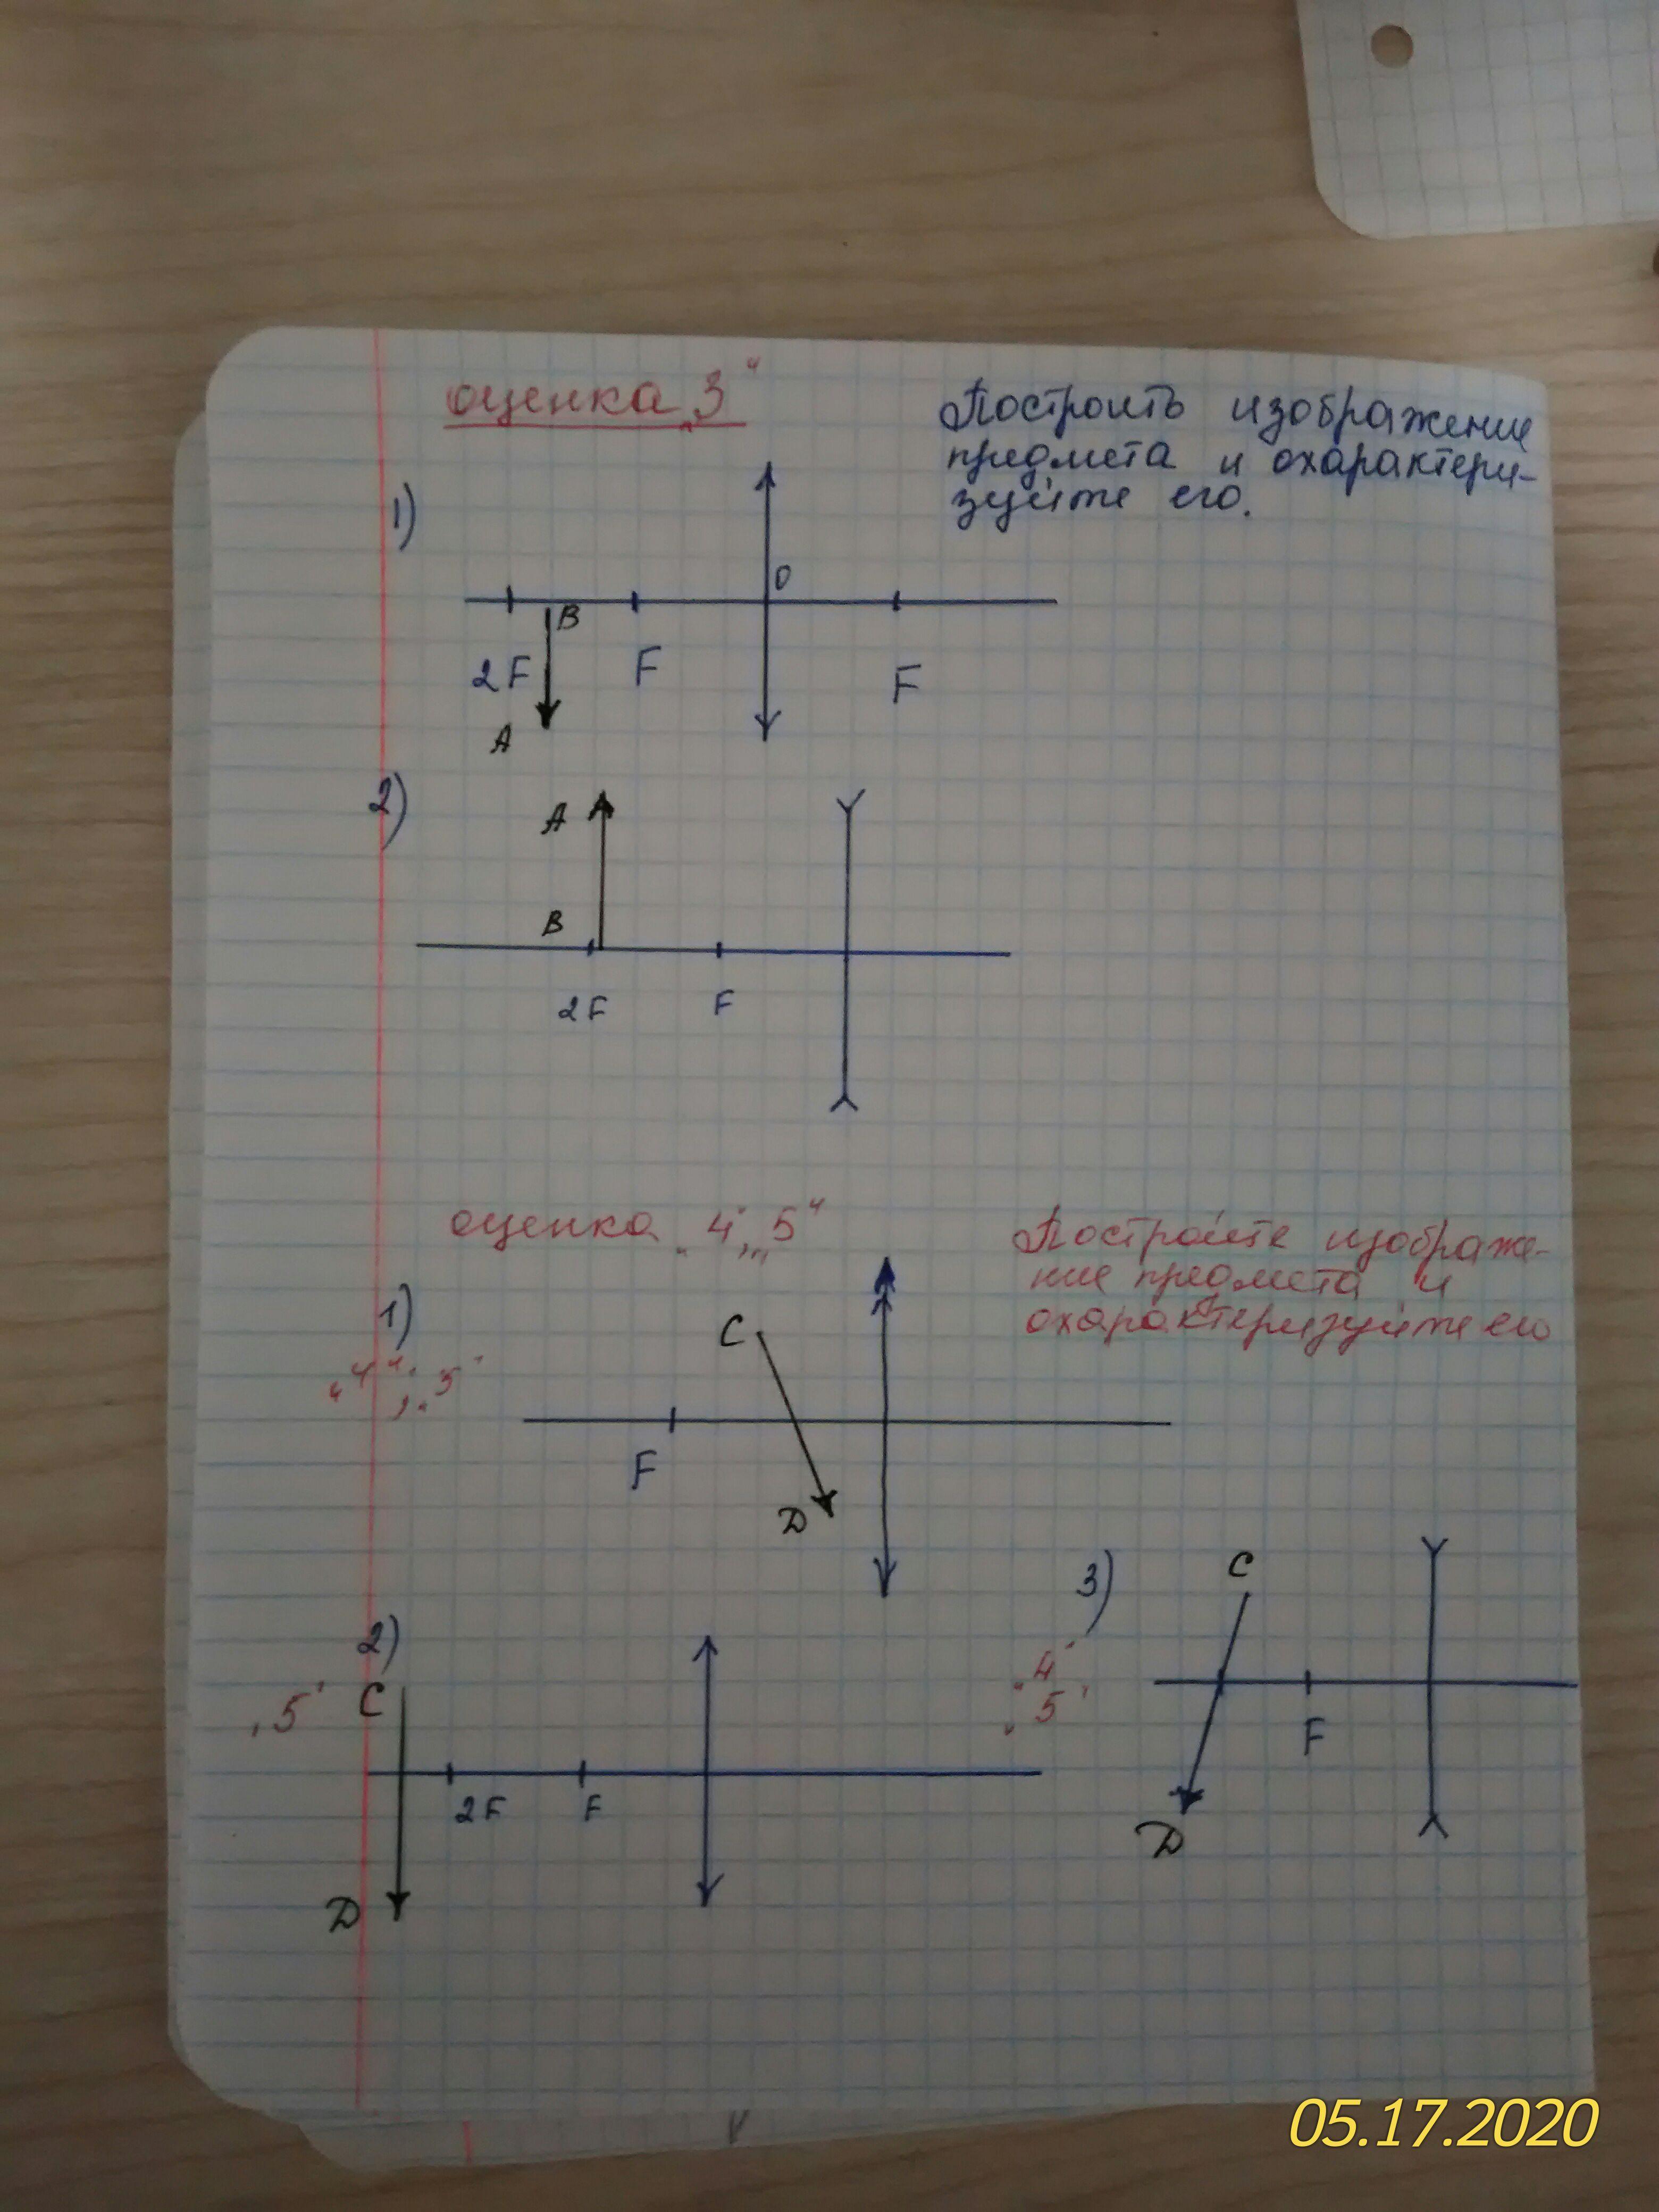 оценка „3"
Построить изображение
предмета и охарактери-
зуйте его.
1)
O
B
2F F F
A
2)
A
B
2F F
оценка „4", „5"
Постройте изображе-
ние предмета и
охарактеризуйте его
1)
„4", „5"
C
F
D
2)
„5"
C
2F F
D
3)
„4"
„5"
C
F
D
05.17.2020